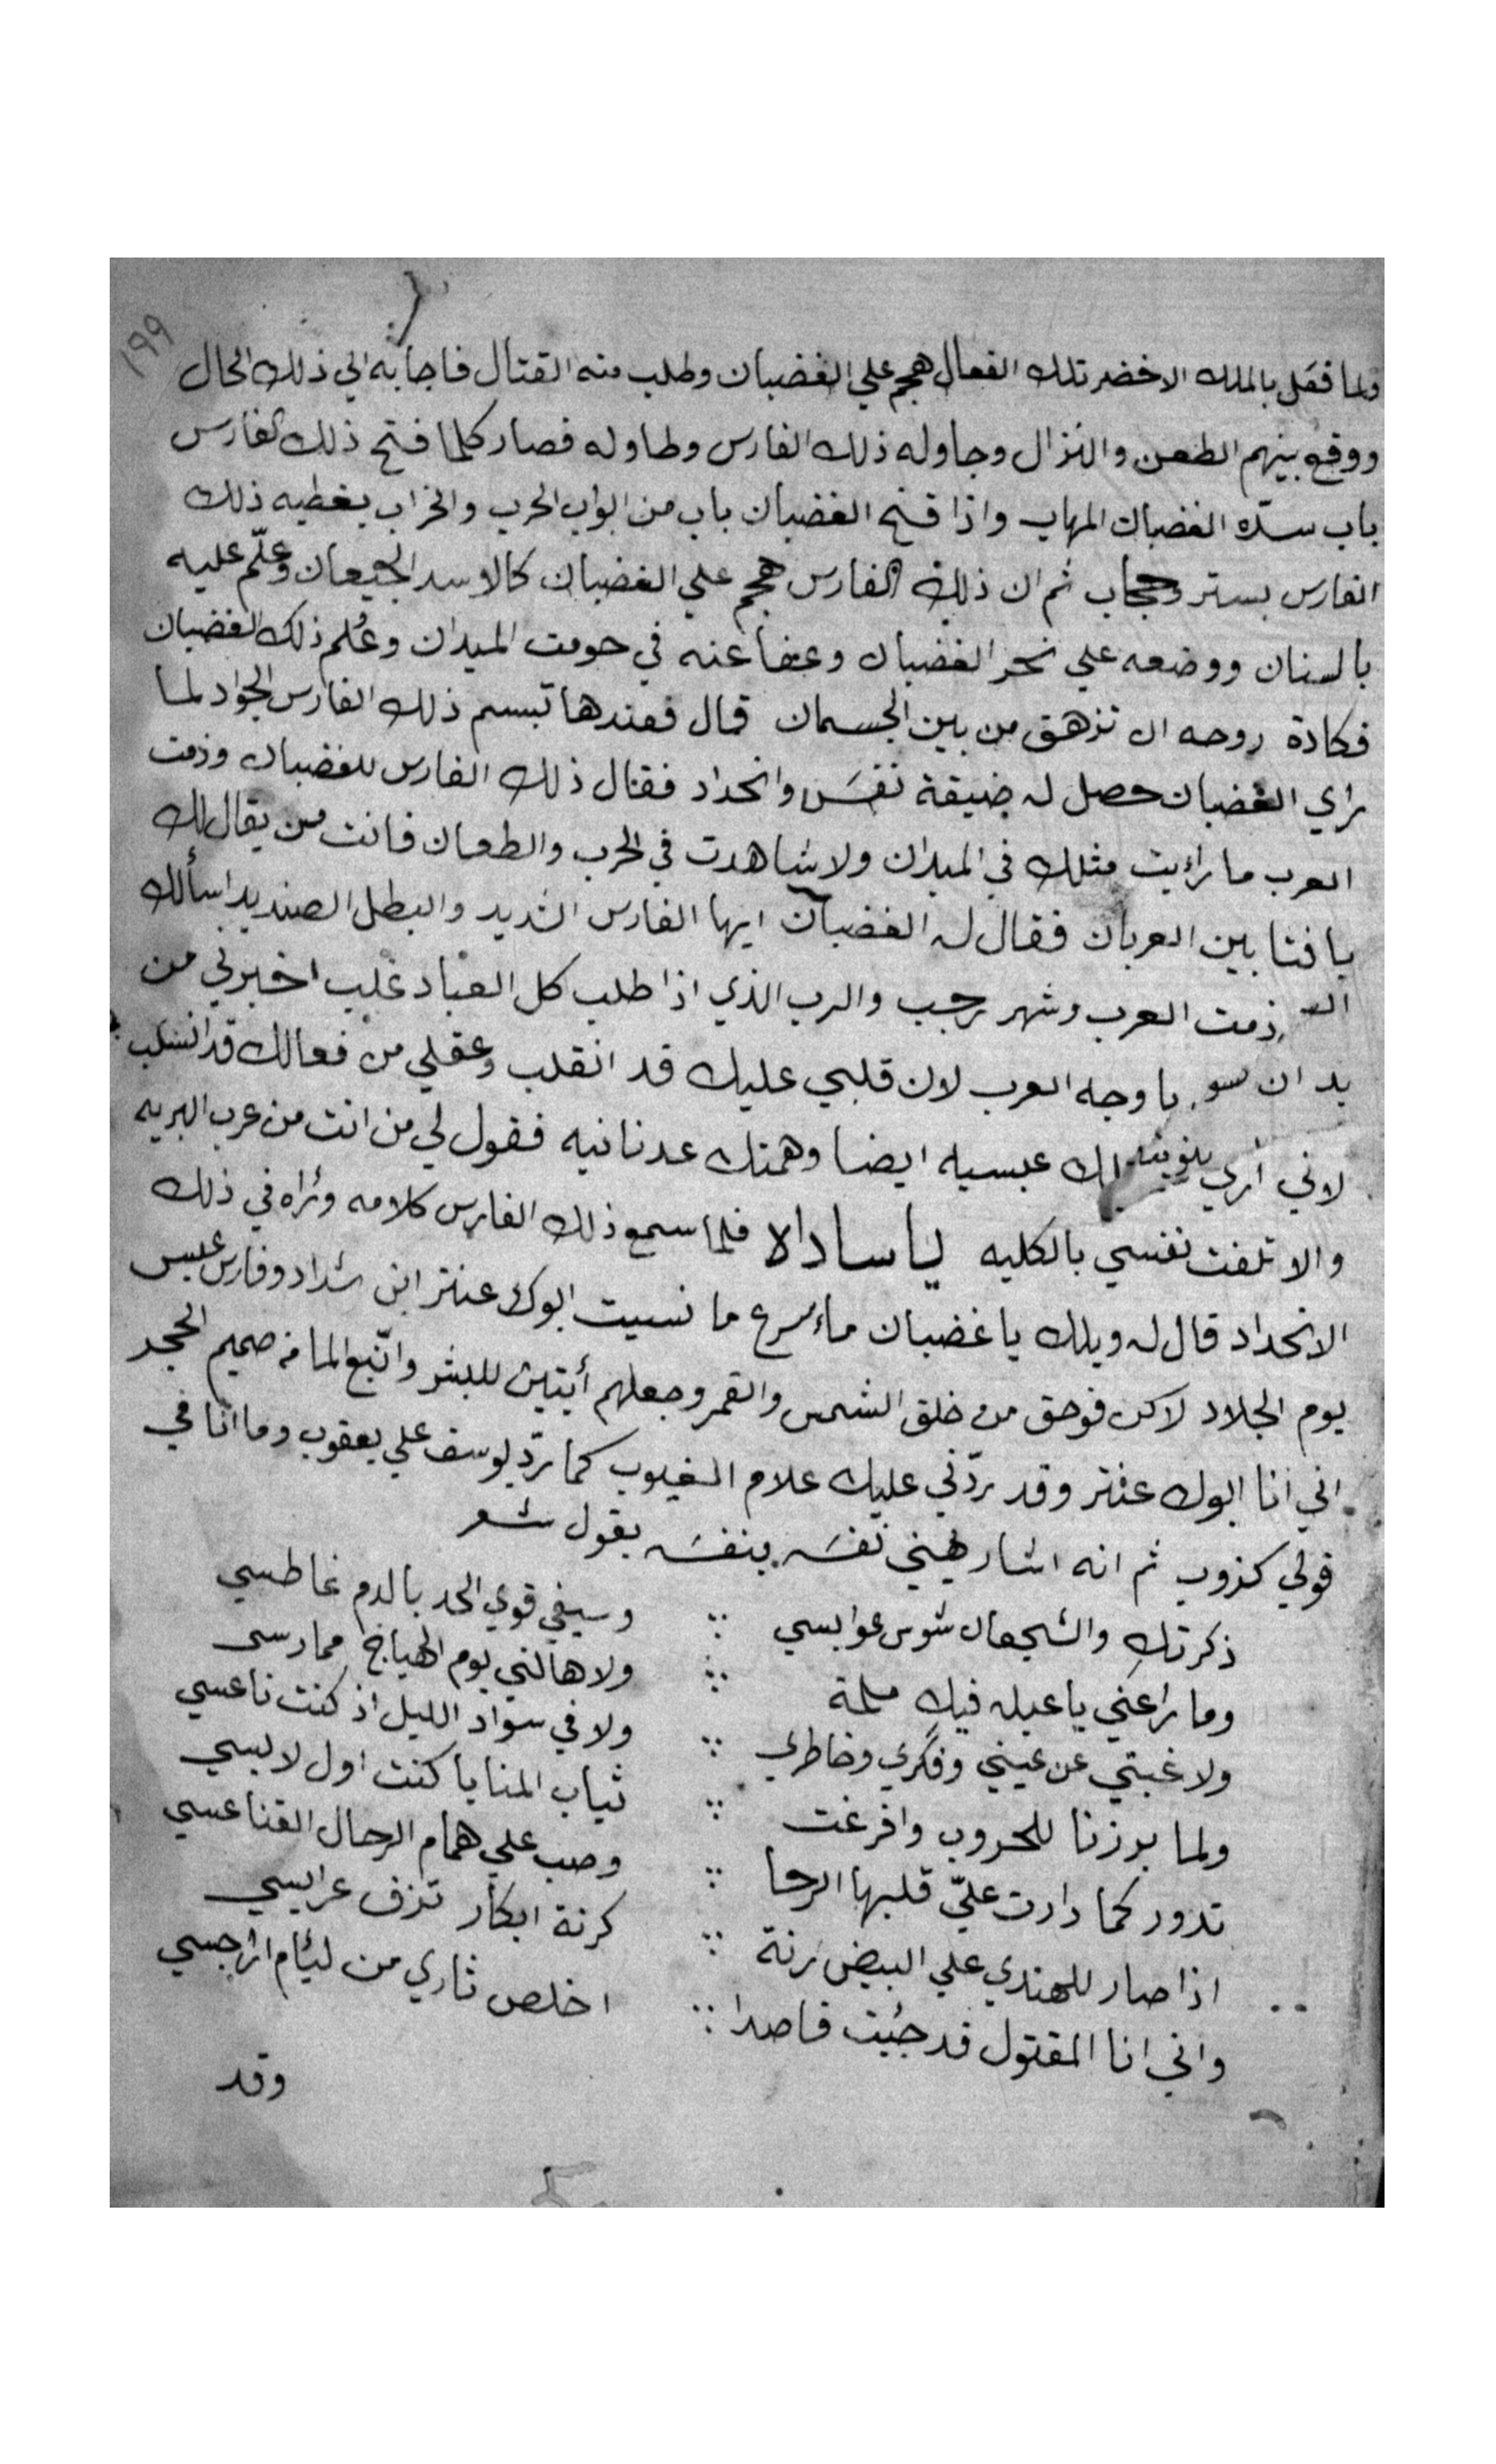 ١٩٩
ولما فعل بالملك الاخضر تلك الفعال هجم علي الغضبان وطلب منه القتال فاجابه الي ذلك الحال
ووقع بينهم الطعن والنزال وجاوله ذلك الفارس وطاوله فصار كلما فتح ذلك الفارس
باب سدّه الغضبان المهاب واذا فتح الغضبان باب من ابواب الحرب والخراب يغطيه ذلك
الفارس بستر وحجاب ثم ان ذلك الفارس هجم علي الغضبان كالاسد الجيعان وعلّم عليه
بالسنان ووضعه علي نحر الغضبان وعفا عنه في حومت الميدان وعُلم ذلك الغضبان
فكادة روحه ان تزهق من بين الجسمان قال فعندها تبسم ذلك الفارس الجواد لما
راي الغضبان حصل له ضيقة نفسَ وانحداد فقال ذلك الفارس للغضبان وذمت
العرب ما رايت مثلك في الميدان ولا شاهدت في الحرب والطعان فانت من يقال لك
يا فتا بين العربان فقال له الغضبان ايها الفارس الشديد والبطل الصنديد اسألك
ذمت العرب وشهر رجب والرب الذي اذا طلب كل العباد غلب اخبرني من
يا وجه العرب لان قلبي عليك قد انقلب وعقلي من فعالك قد انسلب
لاني أري عبسيه ايضا وهمتك عدنانيه فقول لي من انت من عرب البريه
والا تلفت نفسي بالكليه يا ساداه فلما سمع ذلك الفارس كلامه ورٔاه في ذلك
الانحداد قال له ويلك يا غضبان ما اسرع ما نسيت ابوك عنتر ابن شداد وفارس عبس
يوم الجلاد لاكن فوحق من خلق الشمس والقمر وجعلهم أيتين للبشر وانّبع الما من صميم الحجر
اني انا ابوك عنتر وقد ردّني عليك علام الغيوب كما ردّ يوسف علي يعقوب وما انا في
قولي كذوب ثم انه اشار يهني نفسَه بنفسَه يقول شعر
ذكرتكِ والشجعان شوس عوابسي ∴ وسيفي قوي الحد بالدم غاطسي
وما راعني يا عبله فيكِ ملمة ∴ ولا هالني يوم الهياج ممارسي
ولا غبتي عن عيني وفكري وخاطري ∴ ولا في سواد الليل اذ كنت ناعسي
ولما برزنا للحروب وافرغت ∴ ثياب المنايا كنت اول لابسي
تدور كما دارت عليّ قلبها الرحا ∴ وصب علي همام الرجال القناعسي
اذا صار للهندي علي البيض رنة ∴ كرنة ابكار تزف عرايسي
واني انا المقتول قد جُيت قاصدا ∴ اخلص ثاري من لئام ارجسي
وقد